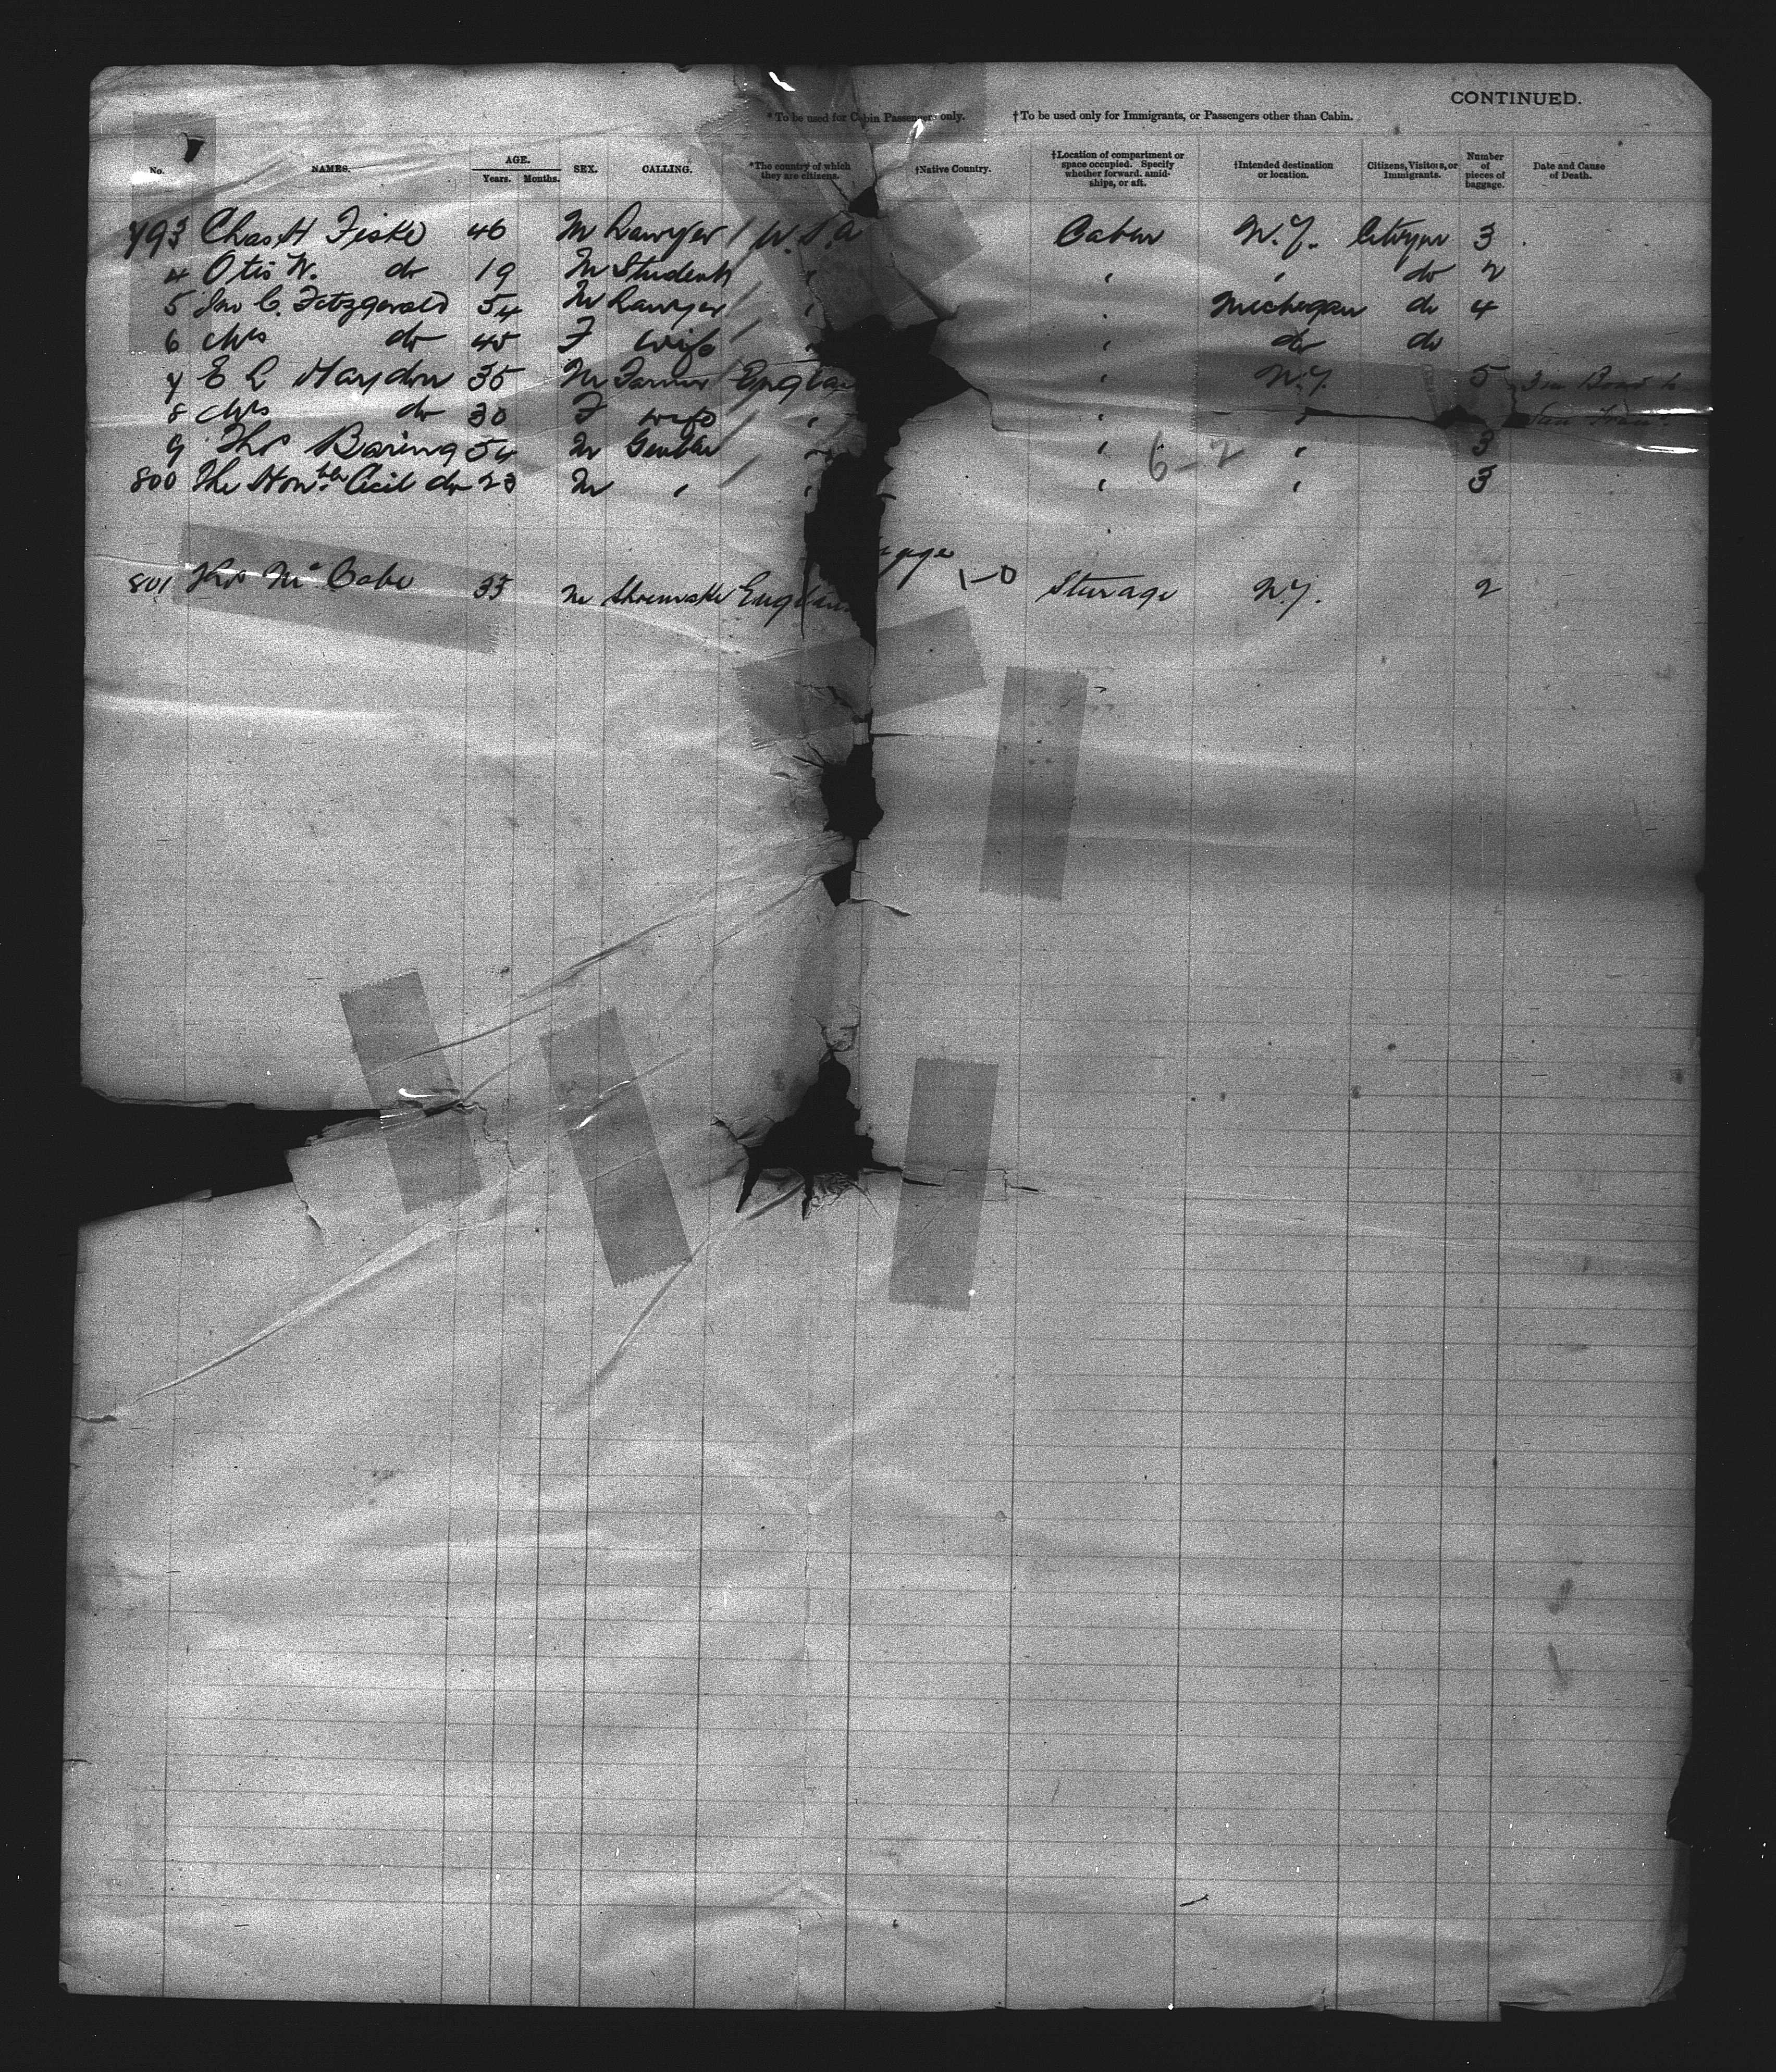 CONTINUED.
* To be used for Cabin Passengers only. †To be used only for Immigrants, or Passengers other than Cabin.
No. NAMES. AGE. Years. Months. SEX. CALLING. *The country of which they are citizens. †Native Country. †Location of compartment or space occupied. Specify whether forward, amidships, or aft. †Intended destination or location. Citizens, Visitors, or Immigrants. Number of pieces of baggage. Date and Cause of Death.
793 Chas H Fiske 46 M Lawyer / U.S.A Cabin N.Y. Citizen 3
4 Otis W. do 19 M Student / " " " do 2
5 Jno C. Fitzgerald 54 M Lawyer / " " Michigan do 4
6 Mrs do 45 F wife / " " do do
7 E L Haydon 35 M Farmer / Englan " N.Y. 5
8 Mrs do 30 F wife / " " "
9 Thos Baring 54 M Gentln / " " " 3
800 The Honble Cecil do 23 M " / " " " 3
6-2
801 Mc Cabe 33 M Shoemake Englan 1-0 Sterage N.Y. 2